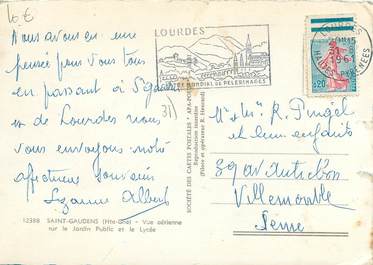 16€
Nous avons eu une
pensée pour vous tous
en passant à St Gaudens
et de Lourdes nous
vous envoyons notre
affectueux souvenir
Suzanne Albert
31
12388 SAINT-GAUDENS (Hte-Gne) - Vue aérienne
sur le Jardin Public et le Lycée
SOCIÉTÉ DES CARTES POSTALES
Reproduction interdite
LOURDES
MONDIAL DE PELERINAGES
LOURDES
1961
HAUTES PYRENEES
0,20
Mr & Mme R. Pingel
et leurs enfants
39 av
Villemomble
Seine